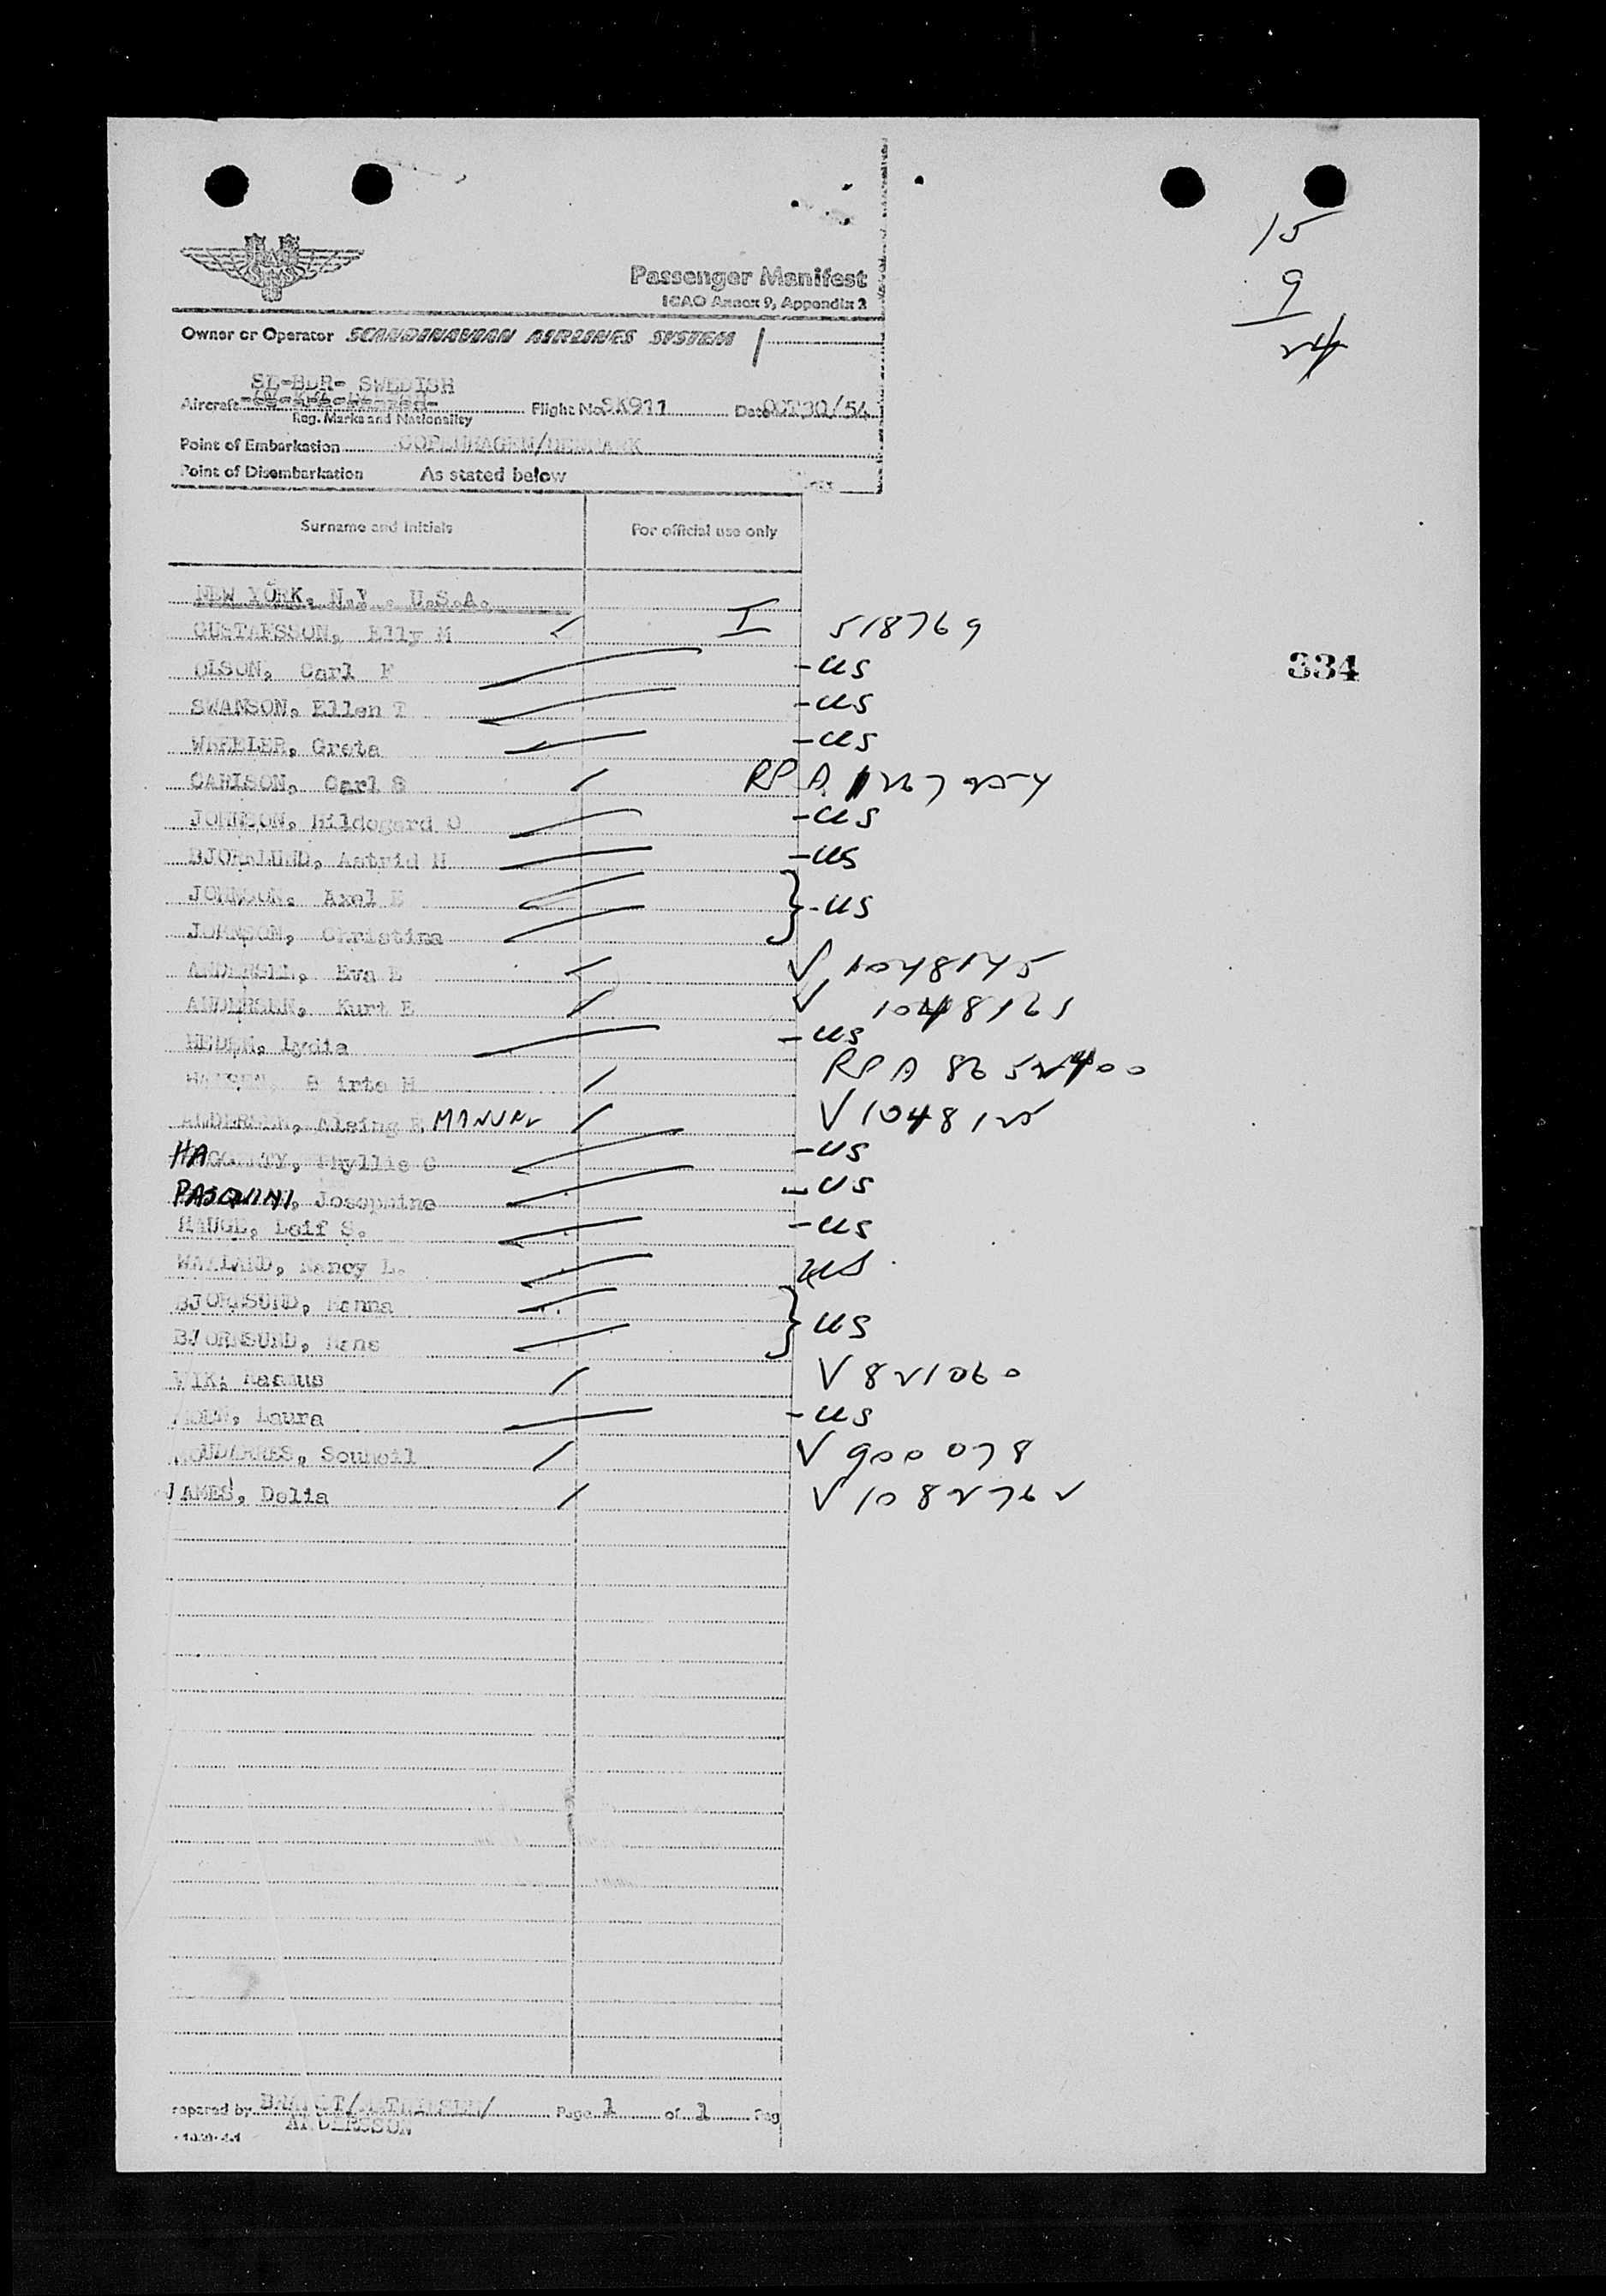 15
9
24
Passenger Manifest
ICAO Annex 9, Appendix 2
Owner or Operator SCANDINAVIAN AIRLINES SYSTEM
SE-BDR- SWEDISH
Aircraft Flight No. SK911 Date OCT30/54
Reg. Marks and Nationality
Point of Embarkation COPENHAGEN/DENMARK
Point of Disembarkation As stated below
Surname and Initials For official use only
NEW YORK, N.Y. U.S.A.
GUSTAFSSON, Elly M I 518769
OLSON, Carl F -US
334
SWANSON, Ellen T -US
WHEELER, Greta -US
CARLSON, Carl S RP A 1267254
JOHNSON, Hildegard O -US
BJORKLUND, Astrid H -US
JOHNSON, Axel E
-US
JOHNSON, Christina
ANDERSEN, Eva E V 1048145
ANDERSEN, Kurt E V 1048161
HEDEN, Lydia -US
RP A 8652400
ANDERSEN, Alsing E, MANUEL V 1048125
HAGGERTY, Phyllis C -US
PASQUINI, Josephine -US
HAUGE, Leif S. -US
Nancy L. US
BJORNSUND, Hanna
US
BJORNSUND, Hans
VIK, V 821060
Laura -US
MOUDARRES, Souheil V 900078
JAMES, Delia V 1082762
repared by
ANDERSSON
Page 1 of 1 Pag